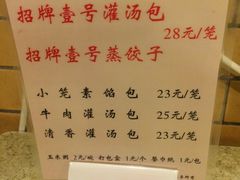 招牌壹号灌汤包
28元/笼
招牌壹号蒸饺子
小笼素馅包 23元/笼
牛肉灌汤包 25元/笼
清香灌汤包 23元/笼
玉米粥 2元/碗 打包盒 1元/个 餐巾纸 1元/包